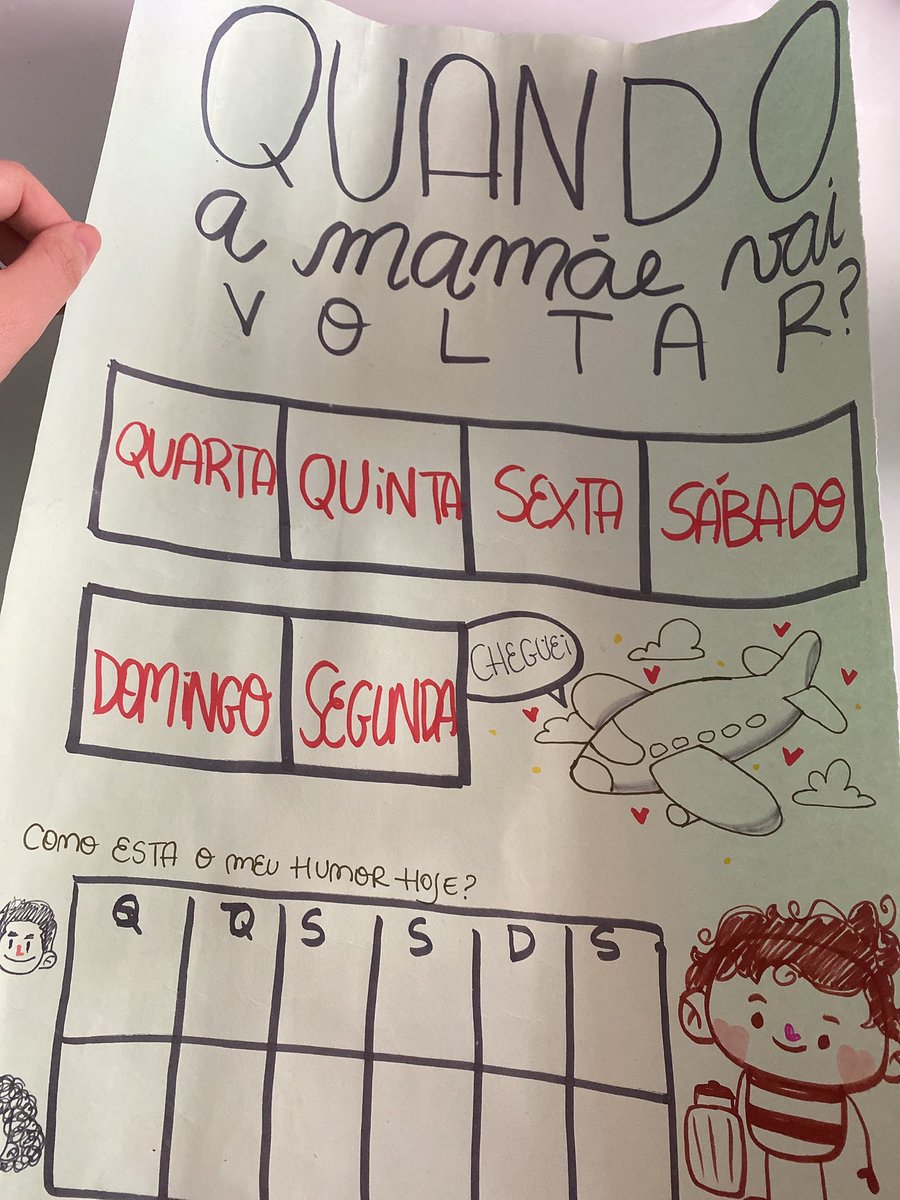 QUANDO
a mamãe vai
VOLTAR?
QUARTA QUINTA SEXTA SÁBADO
DOMINGO SEGUNDA CHEGUEI
COMO ESTA O MEU HUMOR HOJE?
Q Q S S D S